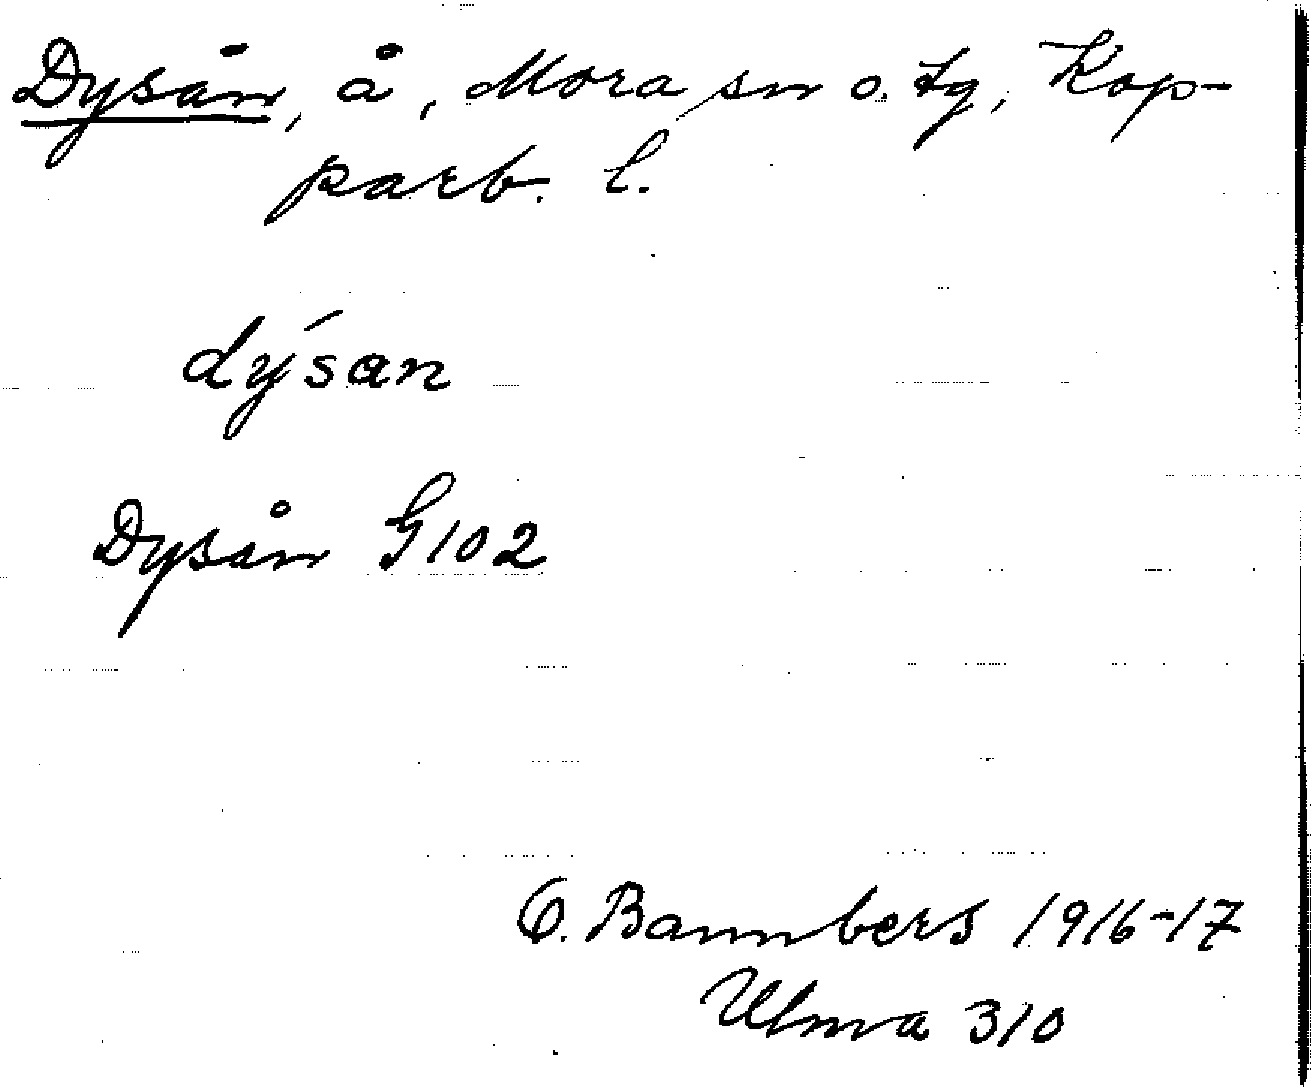 Dysån, å, Mora sn o. tg, Kop-
parb. l.
dy´san
Dysån G102
O. Bannbers 1916-17
Ulma 310